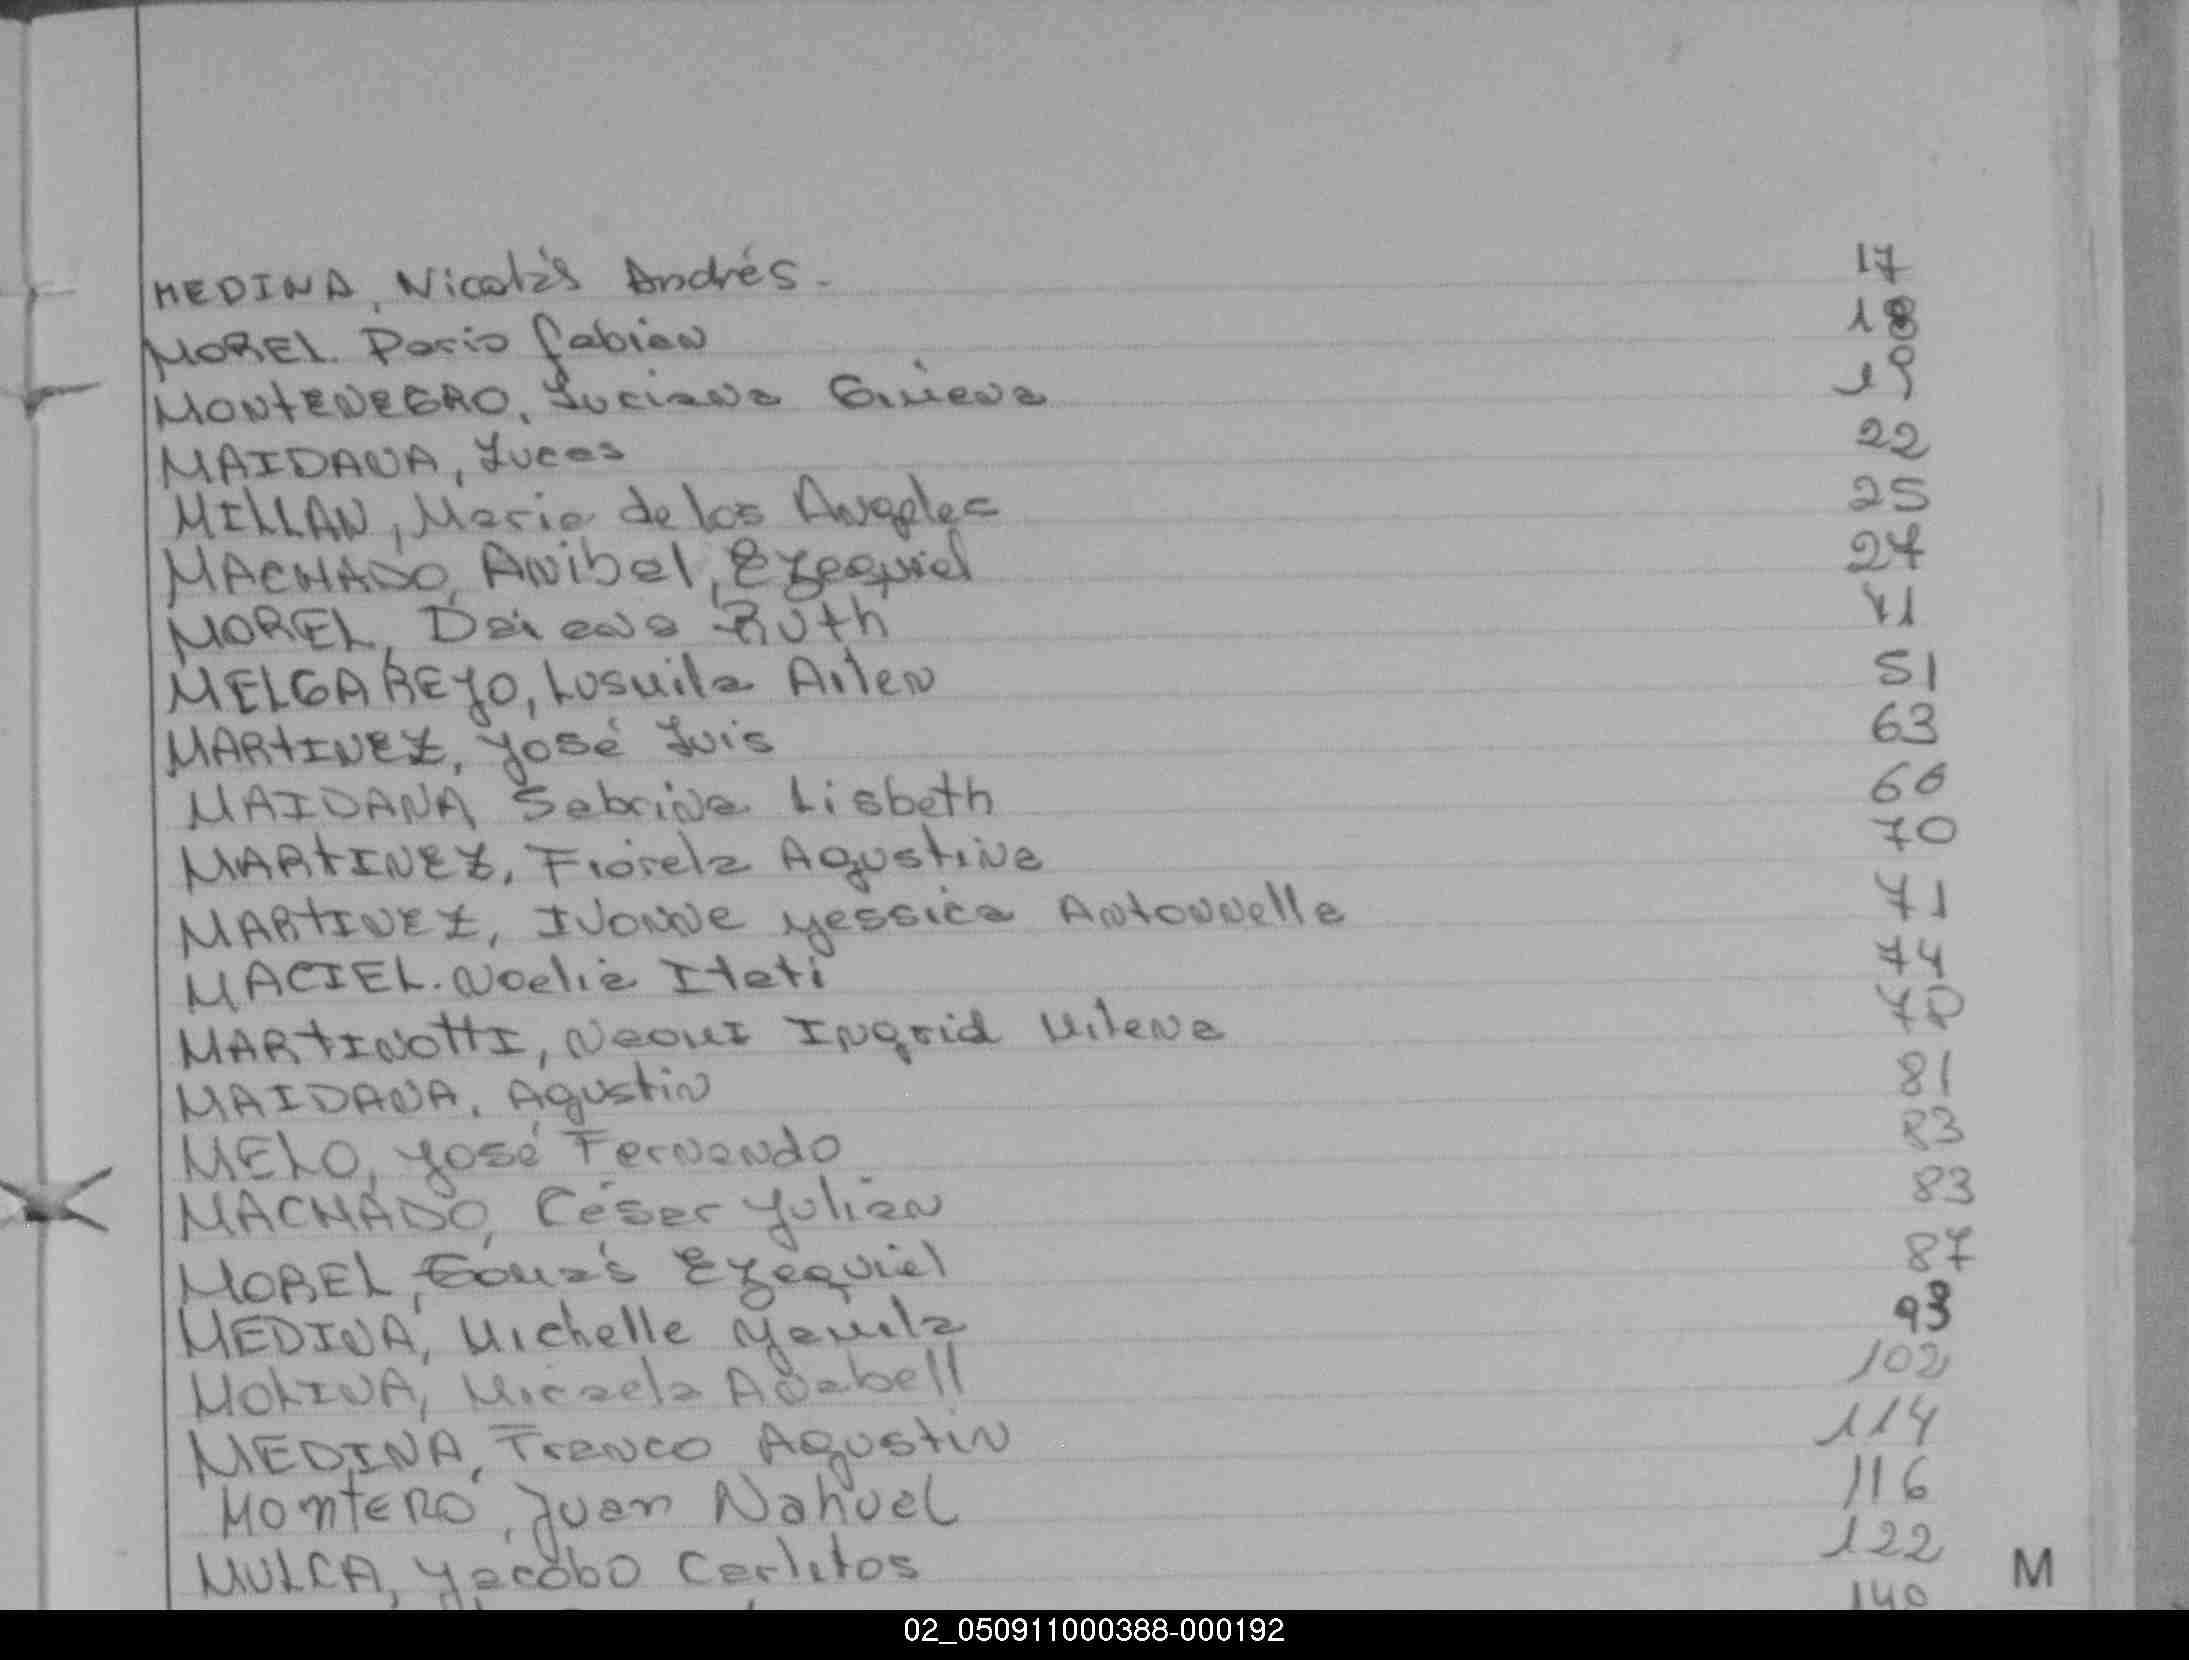 MEDINA, Nicolás Andrés - 17
MOREL. Dario fabian 18
MONTENEGRO, Luciana Gimena 19
MAIDANA, Lucas 22
MILLAN, Maria de los Angeles 25
MACHADO, Anibal, Ezequiel 27
MOREL, Daiana Ruth 41
MELGAREJO, Lusmila Ailen 51
MARTINEZ, José Luis 63
MAIDANA Sabrina Lisbeth 66
MARTINEZ, Fiorela Agustina 70
MARTINEZ, Ivonne Yessica Antonnella 71
MACIEL. Noelia Itati 74
MARTINOTTI, Neomi Ingrid Milena
MAIDANA, Agustin 81
MELO, José Fernando 83
MACHADO, César Julián 83
MOREL, Tomás Ezequiel 87
MEDINA, Michelle Yamila 93
MOLINA, Micaela Anabell 102
MEDINA, Franco Agustin 114
MONTERO, Juan Nahuel 116
MULCA, Jacobo Carlitos 122
140
M
02_050911000388-000192